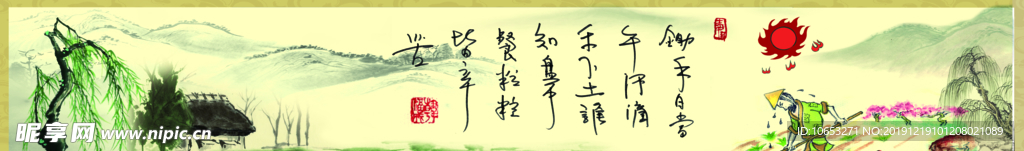 鋤禾日當
午汗滴
禾下土誰
知盘中
餐粒粒
皆辛
苦
昵享网 www.nipic.cn
ID:10653271 NO:20191219101208021089